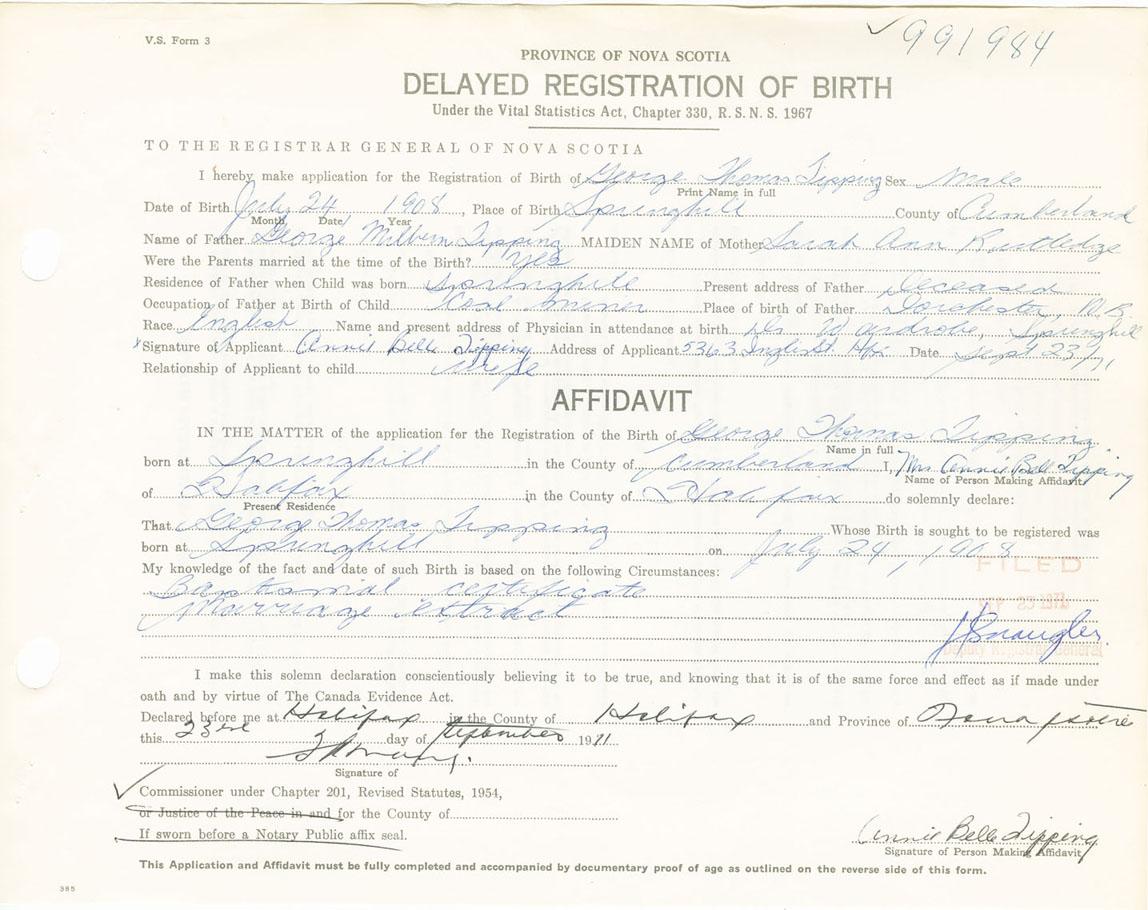 V.S. Form 3
991984
PROVINCE OF NOVA SCOTIA
DELAYED REGISTRATION OF BIRTH
Under the Vital Statistics Act, Chapter 330, R. S. N. S. 1967
TO THE REGISTRAR GENERAL OF NOVA SCOTIA
I hereby make application for the Registration of Birth of George Thomas Tipping Sex Male
Print Name in full
Date of Birth July 24 1908, Place of Birth Springhill County of Cumberland
Month Date Year
Name of Father George Milbern Tipping MAIDEN NAME of Mother Sarah Ann Rutledge
Were the Parents married at the time of the Birth? Yes
Residence of Father when Child was born Springhill Present address of Father Deceased
Occupation of Father at Birth of Child Coal miner Place of birth of Father Dorchester, N.B.
Race English Name and present address of Physician in attendance at birth Dr. Wardrobe, Springhill
Signature of Applicant Annie Belle Tipping Address of Applicant 5363 Inglis St. Hfx Date Sept 23/71
Relationship of Applicant to child wife
AFFIDAVIT
IN THE MATTER of the application for the Registration of the Birth of George Thomas Tipping
Name in full
born at Springhill in the County of Cumberland I, Mrs Annie Bell Tipping
Name of Person Making Affidavit
of Halifax in the County of Halifax do solemnly declare:
Present Residence
That George Thomas Tipping Whose Birth is sought to be registered was
born at Springhill on July 24, 1908
My knowledge of the fact and date of such Birth is based on the following Circumstances:
FILED
Baptismal certificate
SEP 23 1971
Marriage extract
Deputy Registrar General
I make this solemn declaration conscientiously believing it to be true, and knowing that it is of the same force and effect as if made under
oath and by virtue of The Canada Evidence Act.
Declared before me at Halifax in the County of Halifax and Province of Nova Scotia
this 23rd day of September 1971
Signature of
Commissioner under Chapter 201, Revised Statutes, 1954,
or Justice of the Peace in and for the County of
If sworn before a Notary Public affix seal.
Annie Belle Tipping
Signature of Person Making Affidavit
This Application and Affidavit must be fully completed and accompanied by documentary proof of age as outlined on the reverse side of this form.
385